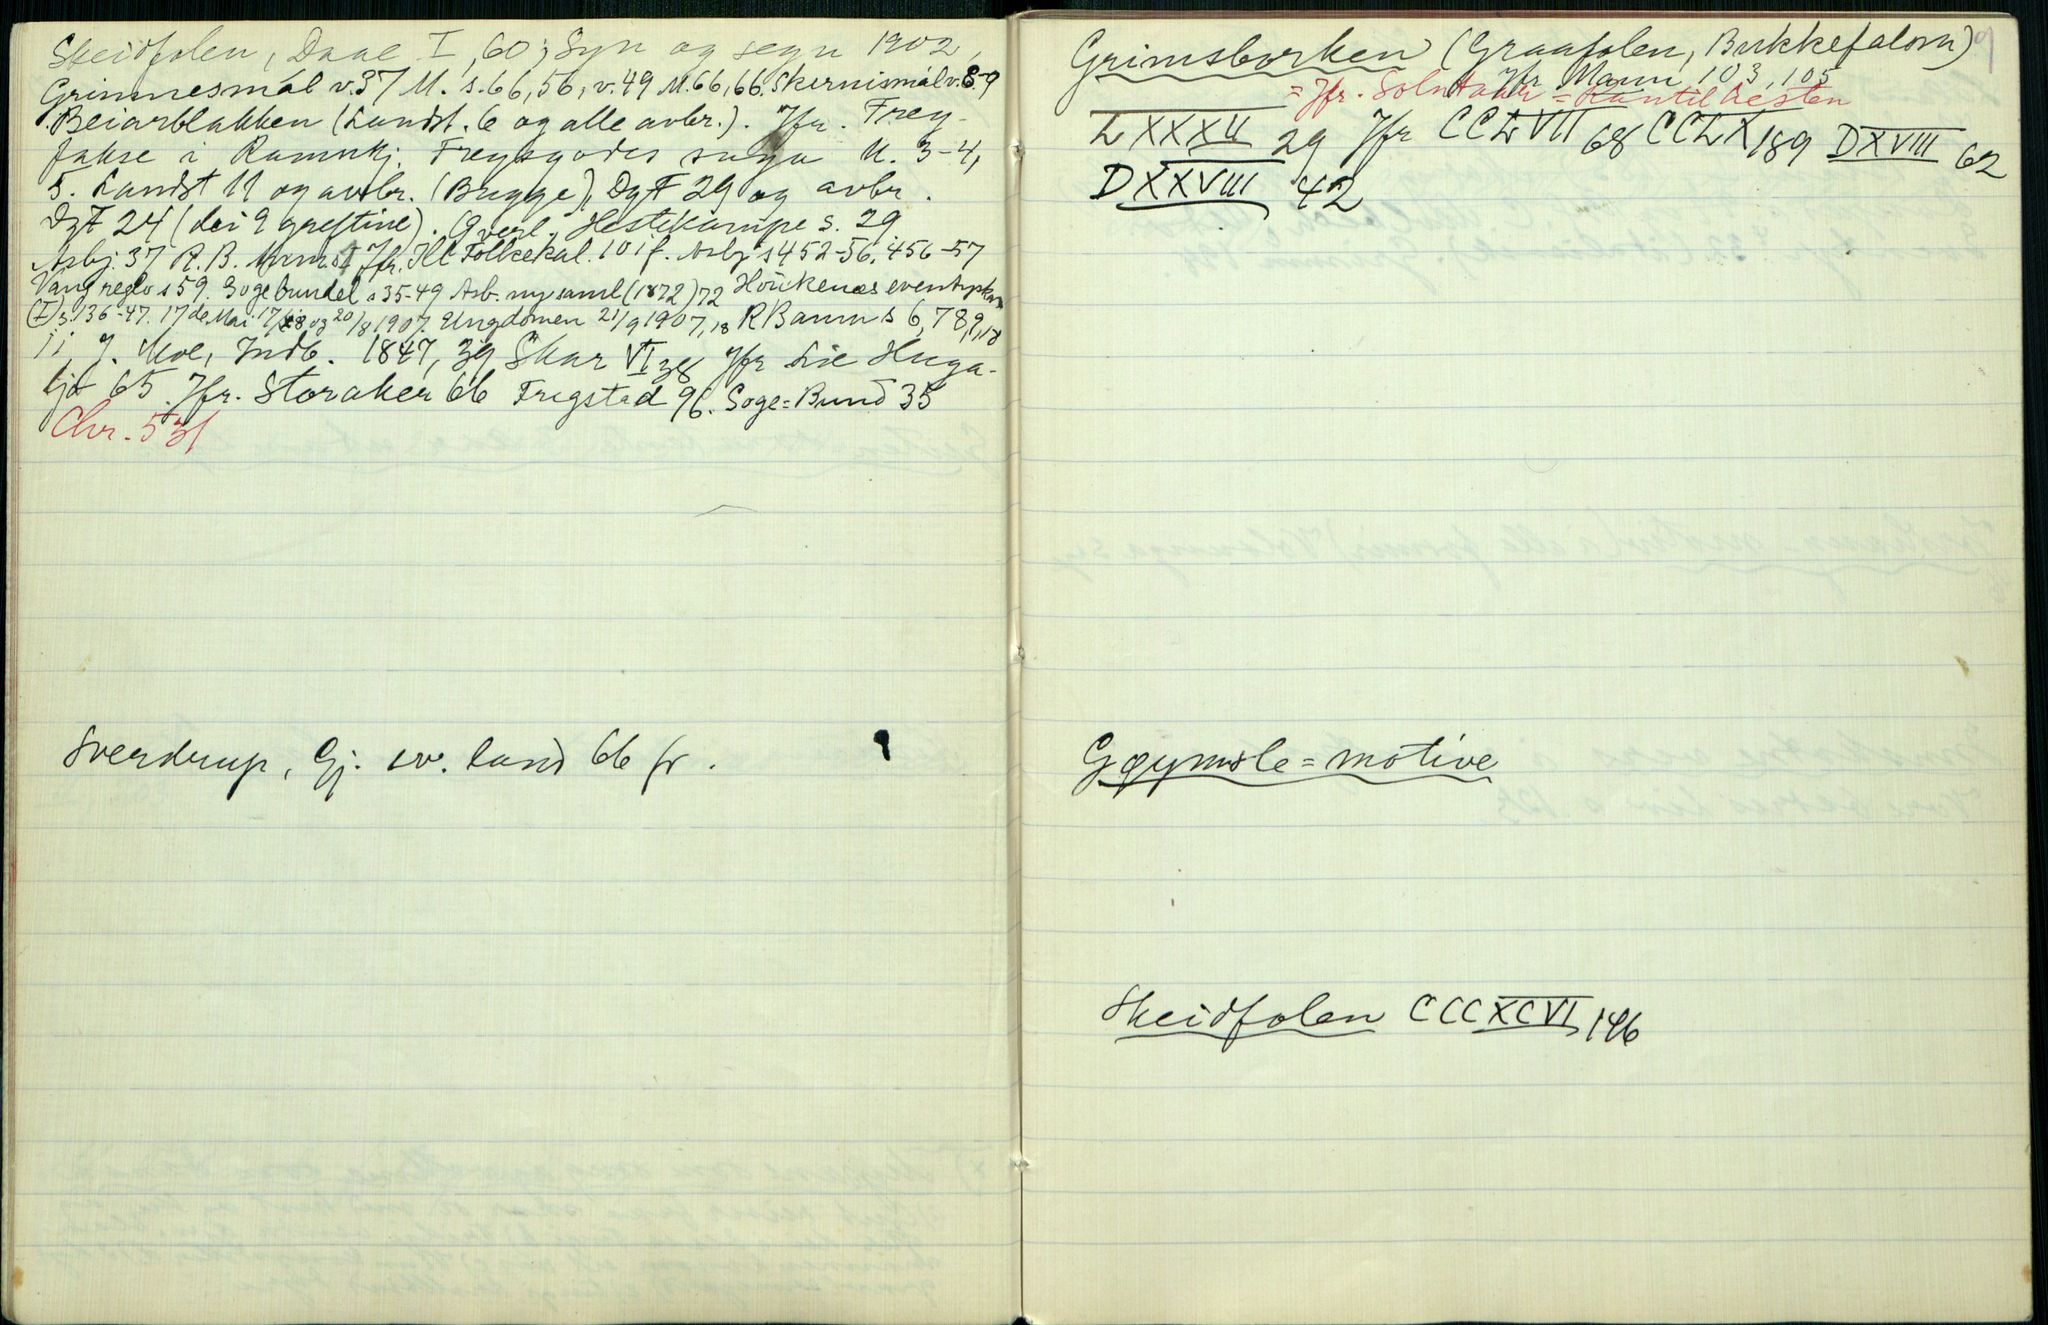 Skeidfolen, Daae I, 60; Syn og segn 1902,
Grimnesmál v.37 M. s.66, 56, v.49 M.66, 66. Skernismál v. 8-9
Beiarblakken (Landst. 6 og alle avbr.). Jfr. Frey-
fakse i Ramnkj. Freysgodes suga U. 3-4,
5. Landst 11 og avbr. (Bugge), DgF 29 og avbr.
DgF 24 (dei 9 greftine). Gverl. Hestekampe s. 29
Asbj. 37 R. B. Jfr. Ill Folkekal. 101 f. Asbj s 452-56. 456-57
Vang reglo s 59. Sogebundel s 35-49 Asb. ny saml (1872) 72 eventyr
(I) s. 136-47. 17de Mai 17/8 og 20/8 1907. Ungdomen 21/9 1907, 18 R Bamm s 6, 7 8, 9, 10
11 J. Moe, Indb. 1847, 39 Skar VI 38 Jfr Lie Huga-
ljo 65. Jfr. Storaker 66 Fregstad 96. Soge=Bund 35
Chr. 531
Sverdrup, Gj. sv. land 66 fr.
Grimsborken (Graafolen, Bukkefalom)
Jfr Mann 103, 105
= Jfr. =
LXXXII 29 Jfr CCLVII 68 CCLX 189 DXVIII 62
DXXVIII 42
Gøymsle=motive
Skeidfolen CCCXCVI 146